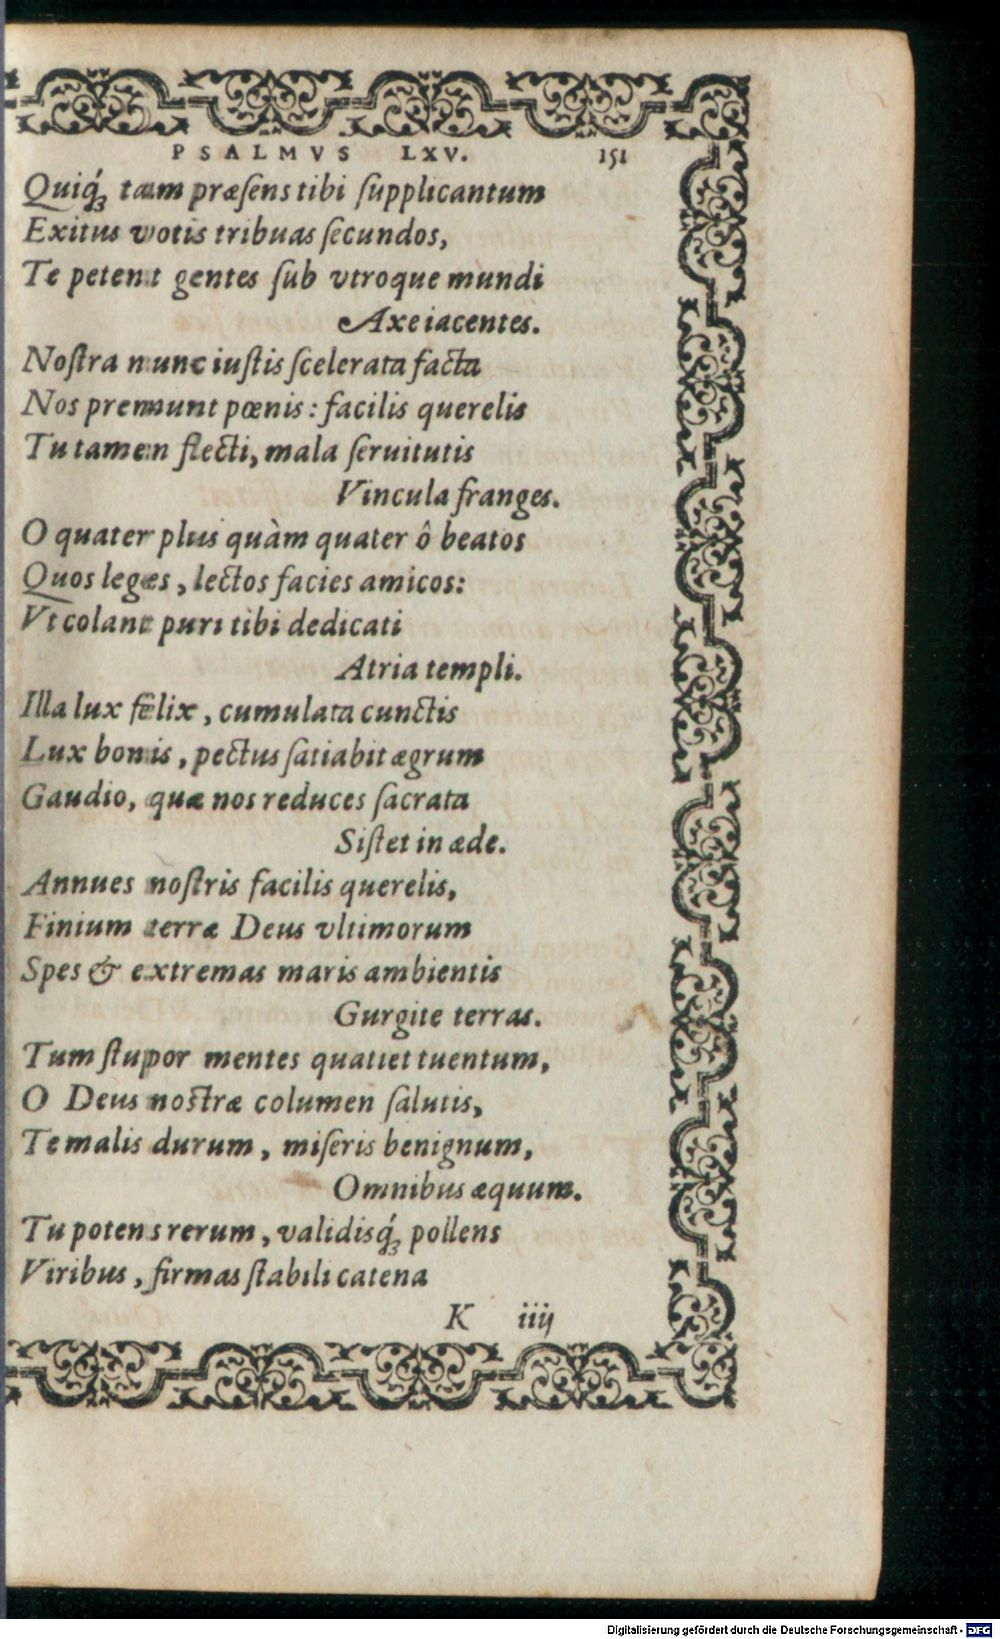 PSALMVS LXV. 151
Quiq́; tam præſens tibi ſupplicantum
Exitus votis tribuas ſecundos,
Te petent gentes ſub vtroque mundi
Axe iacentes.
Noſtra nunc iuſtis ſcelerata facta
Nos premunt pœnis: facilis querelis
Tu tamen flecti, mala ſeruitutis
Vincula franges.
O quater plus quàm quater ô beatos
Quos leges, lectos facies amicos:
Vt colant puri tibi dedicati
Atria templi.
Illa lux fêlix, cumulata cunctis
Lux bonis, pectus ſatiabit ægrum
Gaudio, quæ nos reduces ſacrata
Siſtet in æde.
Annues noſtris facilis querelis,
Finium terræ Deus vltimorum
Spes & extremas maris ambientis
Gurgite terras.
Tum ſtupor mentes quatiet tuentum,
O Deus noſtræ columen ſalutis,
Te malis durum, miſeris benignum,
Omnibus æquum.
Tu potens rerum, validisq́; pollens
Viribus, firmas ſtabili catena
K iiij
Digitalisierung gefördert durch die Deutsche Forschungsgemeinschaft - DFG